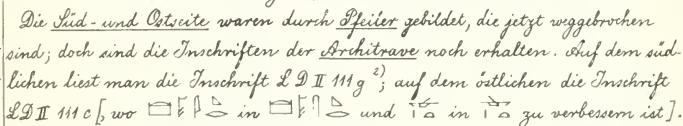 Die Süd- und Ostseite waren durch Pfeiler gebildet, die jetzt weggebrochen
sind; doch sind die Inschriften der Architrave noch erhalten. Auf dem süd-
lichen liest man die Inschrift L D II 111 g ²⁾; auf dem östlichen die Inschrift
L D II 111 c [, wo in und in zu verbessern ist].